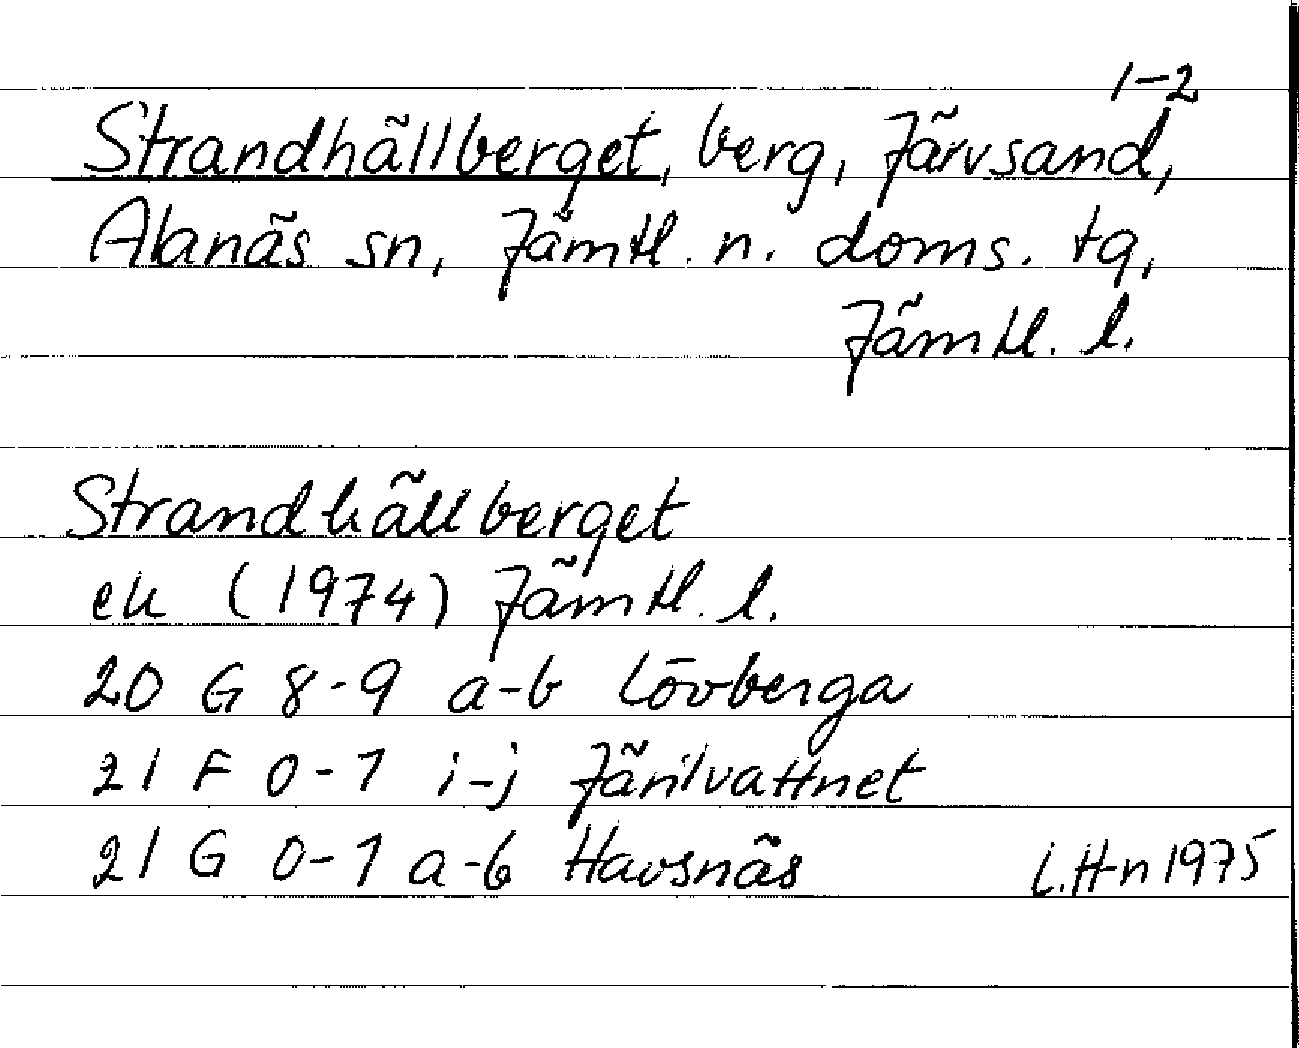 1-2
Strandhällberget, berg, Järvsand,
Alanäs sn, Jämtl. n. doms. tg,
Jämtl. l.
Strandhällberget
ek (1974) Jämtl. l.
20 G 8-9 a-b Lövberga
21 F 0-1 i-j Järilvattnet
21 G 0-1 a-b Havsnäs
L.H-n 1975